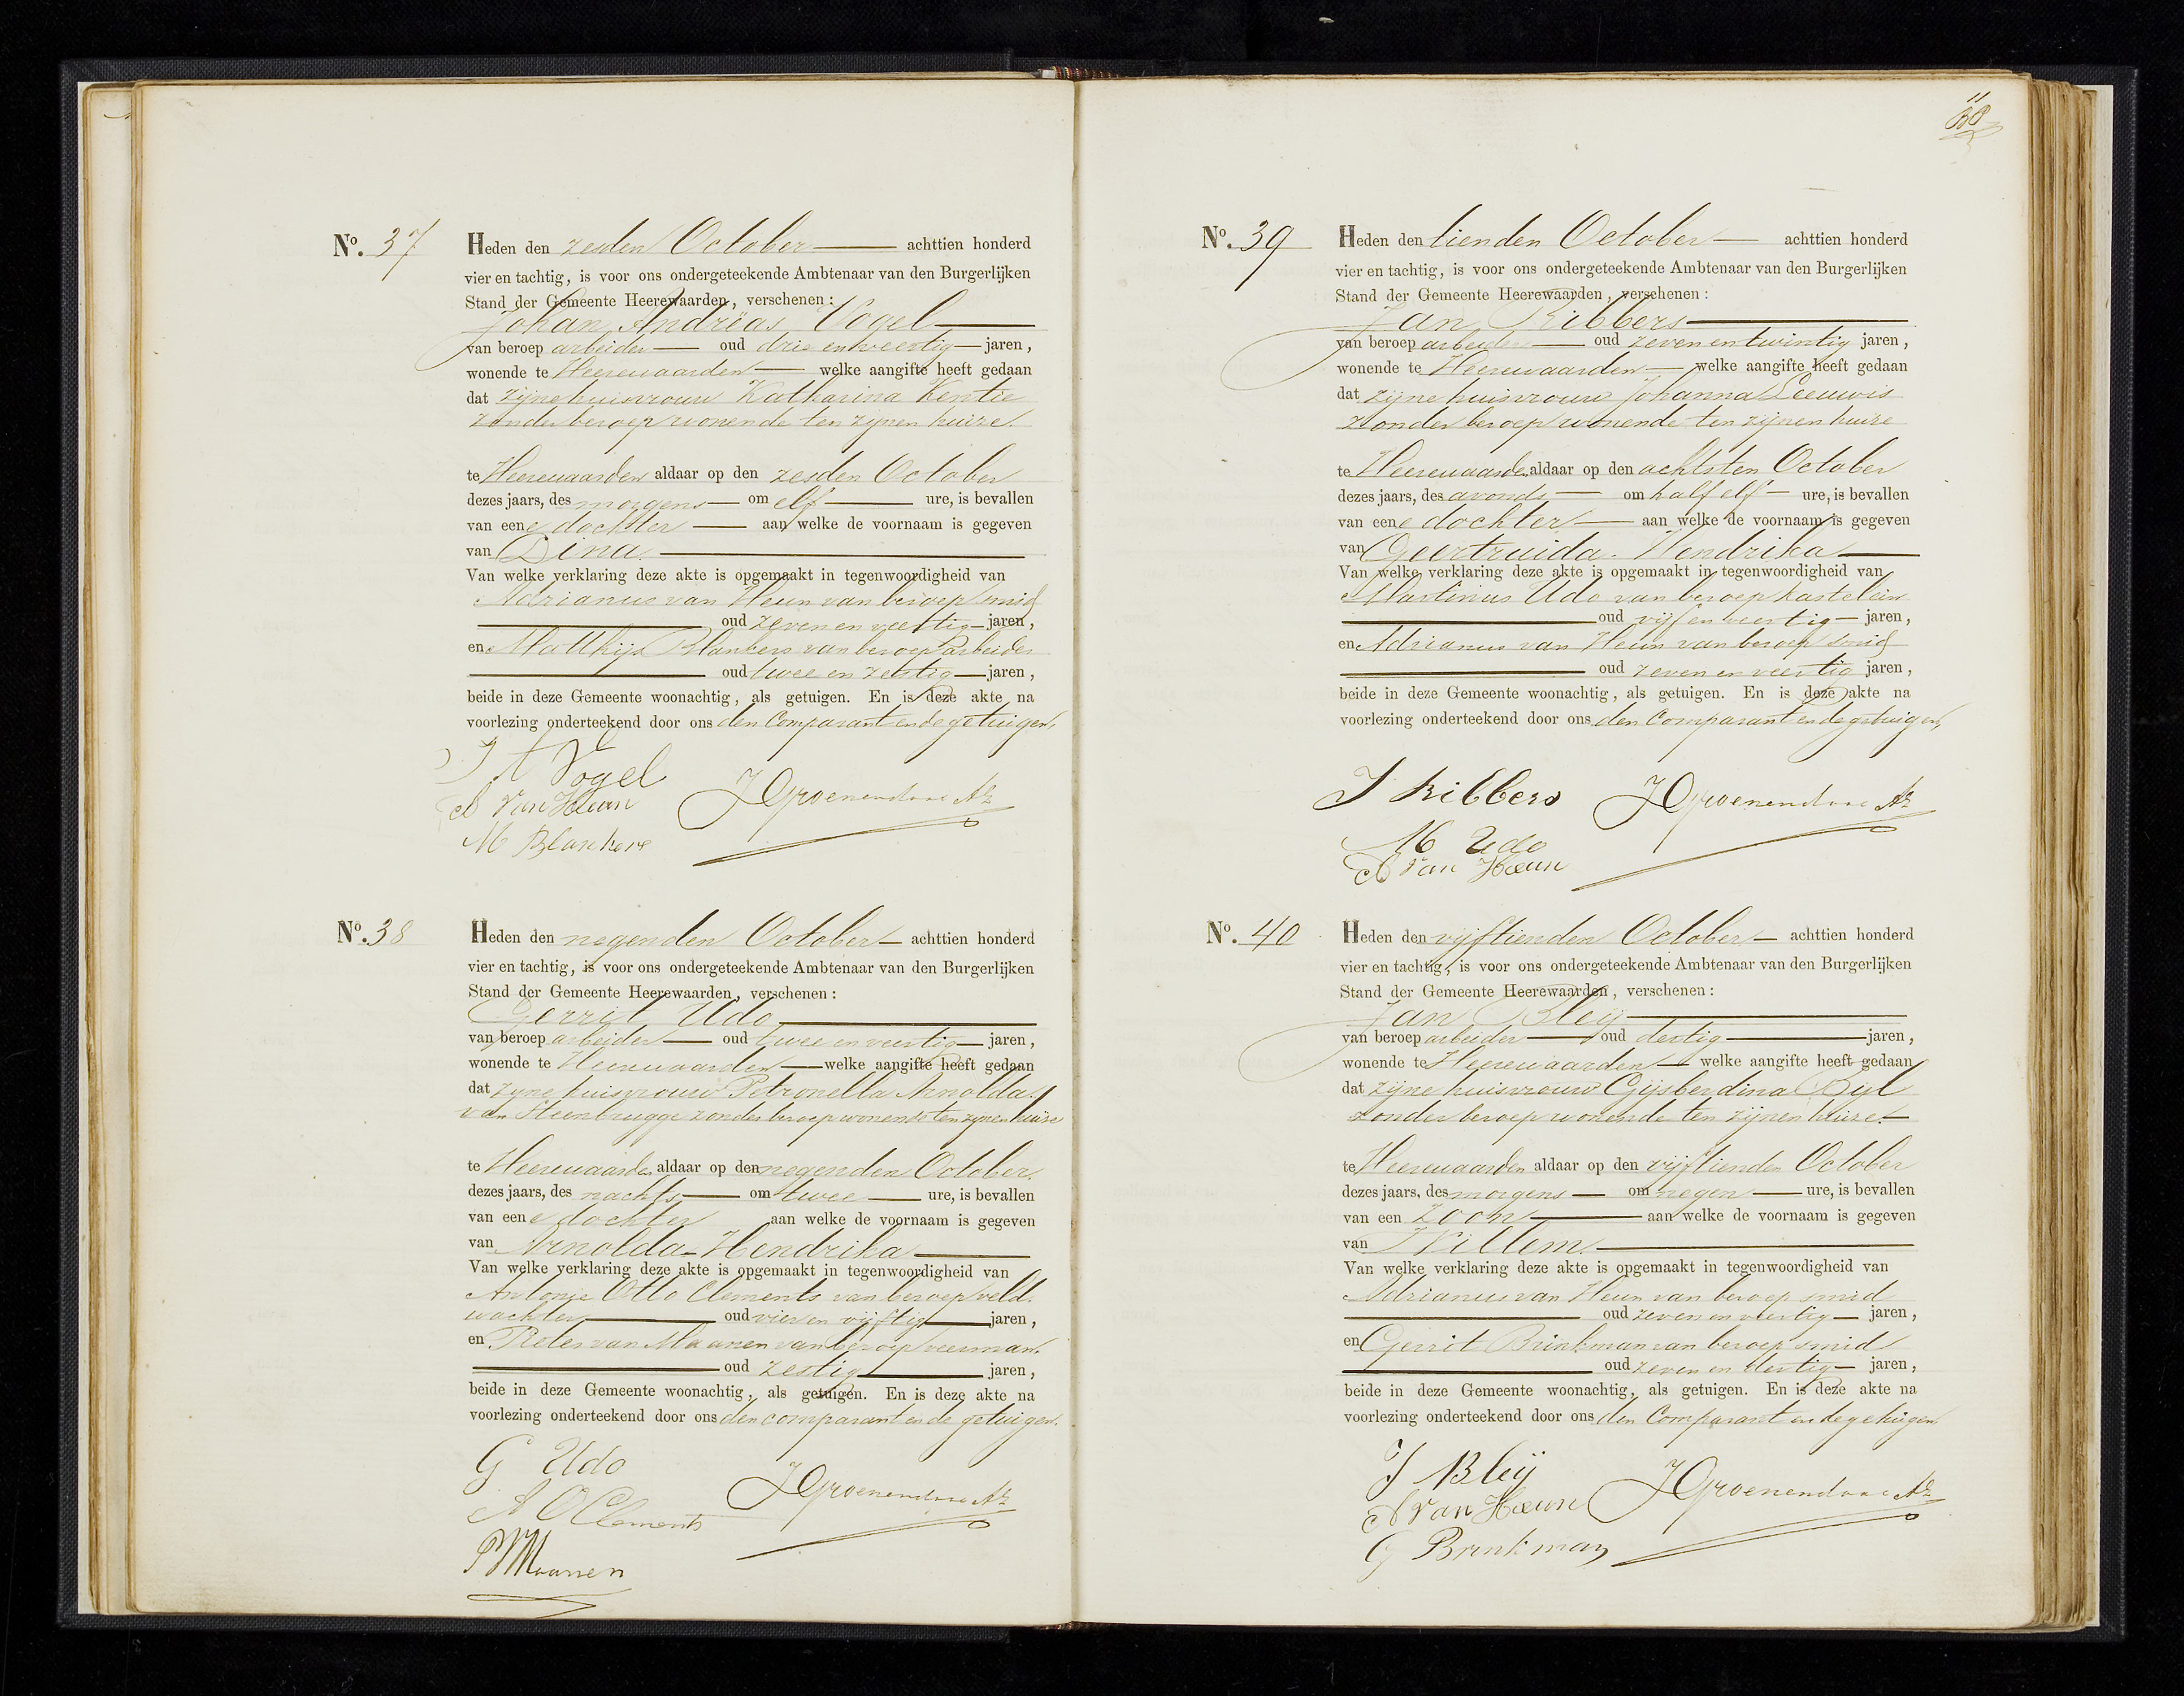 No. 37
Heden den zesden October achttien honderd
vier en tachtig, is voor ons ondergeteekende Ambtenaar van den Burgerlijken
Stand der Gemeente Heerewaarden, verschenen:
Johan Andréas Vogel
van beroep arbeider oud drie en veertig jaren,
wonende te Heerewaarden welke aangifte heeft gedaan
dat zijne huisvrouw Katharina Kentie
zonder beroep wonende ten zijnen huize.
te Heerewaarden aldaar op den zesden October
dezes jaars, des morgens om elf ure, is bevallen
van eene dochter aan welke de voornaam is gegeven
van Dina.
Van welke verklaring deze akte is opgemaakt in tegenwoordigheid van
Adrianus van Heun van beroep smid
oud zeven en veertig jaren,
en Matthijs Blankers van beroep arbeider
oud twee en zestig jaren,
beide in deze Gemeente woonachtig, als getuigen. En is deze akte na
voorlezing onderteekend door ons den Comparant en de getuigen,
J A Vogel
A Van Heun
JGroenendaal Az
M Blankers
No. 38
Heden den negenden October achttien honderd
vier en tachtig, is voor ons ondergeteekende Ambtenaar van den Burgerlijken
Stand der Gemeente Heerewaarden, verschenen:
Gerrit Udo
van beroep arbeider oud twee en veertig jaren,
wonende te Heerewaarden welke aangifte heeft gedaan
dat zijne huisvrouw Petronella Arnolda
van Steenbrugge zonder beroep wonende ten zijnen huize
te Heerewaarden aldaar op den negenden October.
dezes jaars, des nachts om twee ure, is bevallen
van eene dochter aan welke de voornaam is gegeven
van Arnolda-Hendrika
Van welke verklaring deze akte is opgemaakt in tegenwoordigheid van
Antonie Otto Clements van beroep veld.
wachter oud vier en vijftig jaren,
en Pieter van Maanen van beroep veerman.
oud zestig jaren,
beide in deze Gemeente woonachtig, als getuigen. En is deze akte na
voorlezing onderteekend door ons den comparant en de getuigen.
G Udo
A O Clements
JGroenendaal Az
P V Maanen
11
No. 39
Heden den tienden October achttien honderd
vier en tachtig, is voor ons ondergeteekende Ambtenaar van den Burgerlijken
Stand der Gemeente Heerewaarden, verschenen:
Jan Kibbers
van beroep arbeider oud zeven en twintig jaren,
wonende te Heerewaarden welke aangifte heeft gedaan
dat zijne huisvrouw Johanna Leeuwis
zonder beroep wonende ten zijnen huize
te Heerewaarden aldaar op den achtsten October
dezes jaars, des avonds om half elf ure, is bevallen
van eene dochter aan welke de voornaam is gegeven
van Geertruida-Hendrika
Van welke verklaring deze akte is opgemaakt in tegenwoordigheid van
Martinus Udo van beroep kastelein
oud vijf en veertig jaren,
en Adrianus van Heun van beroep smid
oud zeven en veertig jaren,
beide in deze Gemeente woonachtig, als getuigen. En is deze akte na
voorlezing onderteekend door ons den Comparant en de getuigen,
J Kibbers
JGroenendaal Az
M Udo
A Van Heun
No. 40
Heden den vijftienden October achttien honderd
vier en tachtig, is voor ons ondergeteekende Ambtenaar van den Burgerlijken
Stand der Gemeente Heerewaarden, verschenen:
Jan Bleij
van beroep arbeider oud dertig jaren,
wonende te Heerewaarden welke aangifte heeft gedaan
dat zijne huisvrouw Gijsberdina Bijl
zonder beroep wonende ten zijnen huize.
te Heerewaarden aldaar op den vijftienden October
dezes jaars, des morgens om negen ure, is bevallen
van een zoon aan welke de voornaam is gegeven
van Willem
Van welke verklaring deze akte is opgemaakt in tegenwoordigheid van
Adrianus van Heun van beroep smid
oud zeven en veertig jaren,
en Gerrit Brinkman van beroep smid
oud zeven en dertig jaren,
beide in deze Gemeente woonachtig, als getuigen. En is deze akte na
voorlezing onderteekend door ons den Comparant en de getuigen
J Bleij
A Van Heun
JGroenendaal Az
G Brinkman